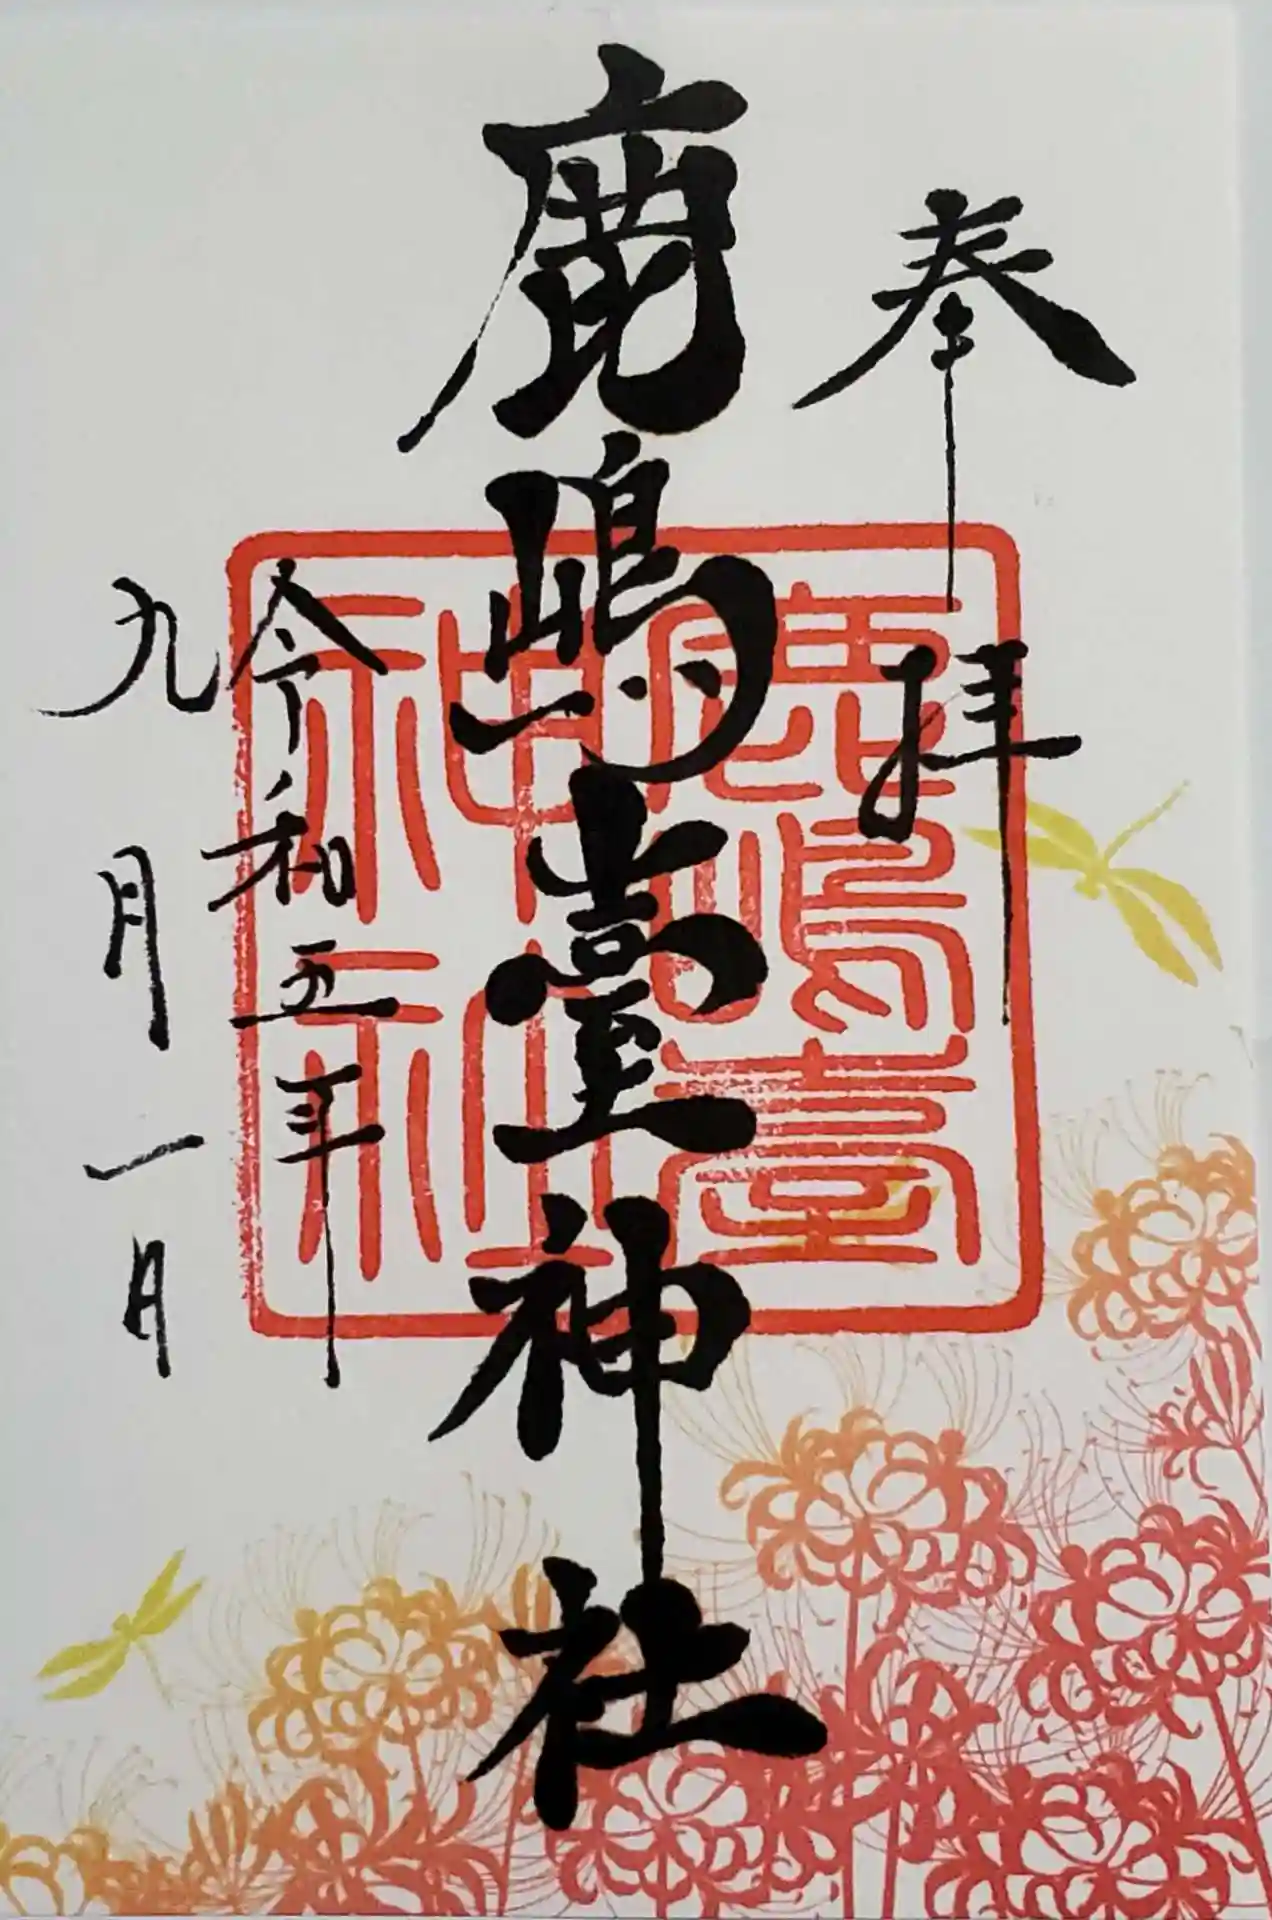 奉拝
鹿嶋臺神社
鹿嶋臺
神社
令和五年
九月一日